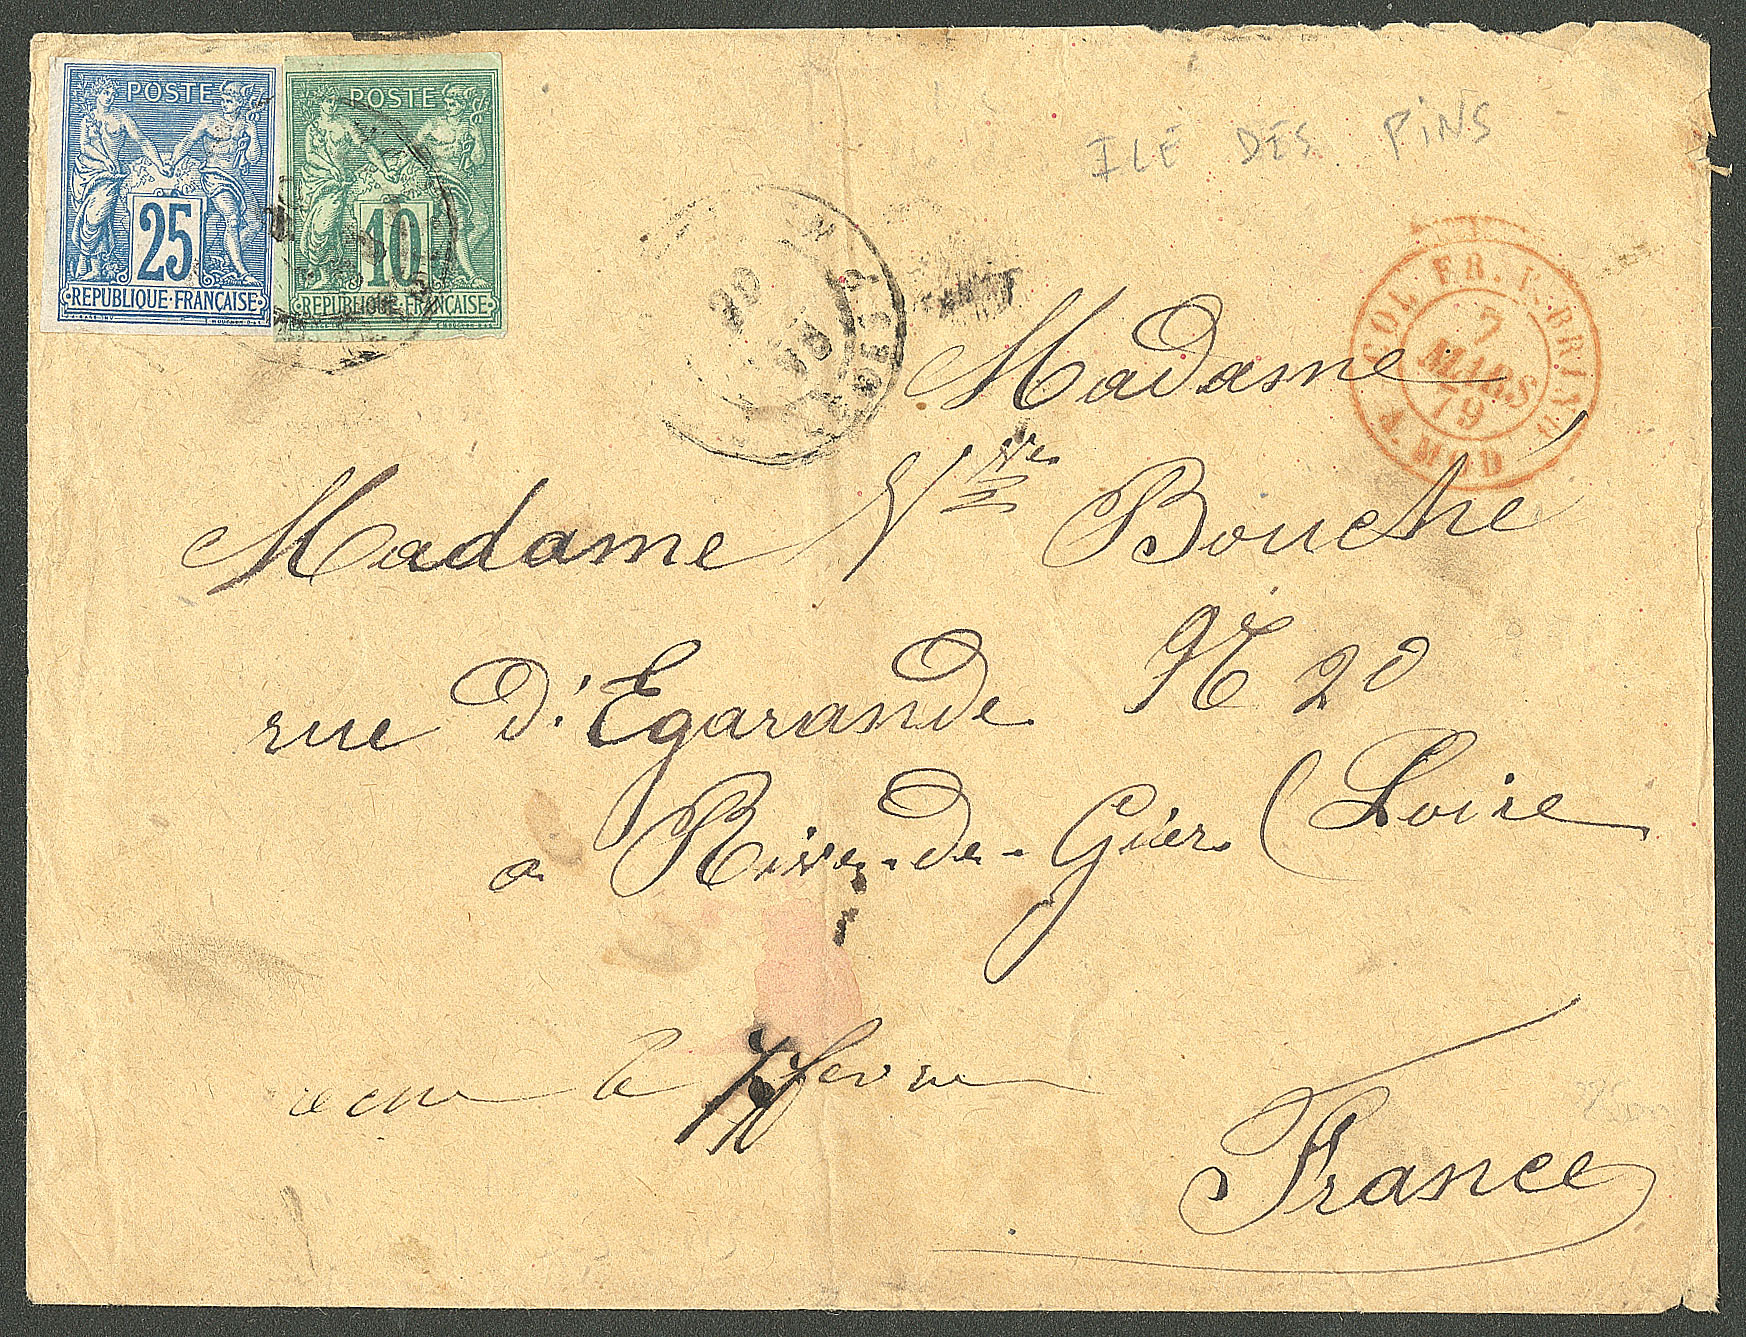 POSTE
25
REPUBLIQUE·FRANÇAISE
POSTE
10
REPUBLIQUE·FRANÇAISE
ILE DES PINS
COL FR. V. BRI
7
MARS
79
Madame
Madame Vve Bouche
rue d'Egarande No 20
a Rive-de-Gier (Loire
le 7 fevrier
France